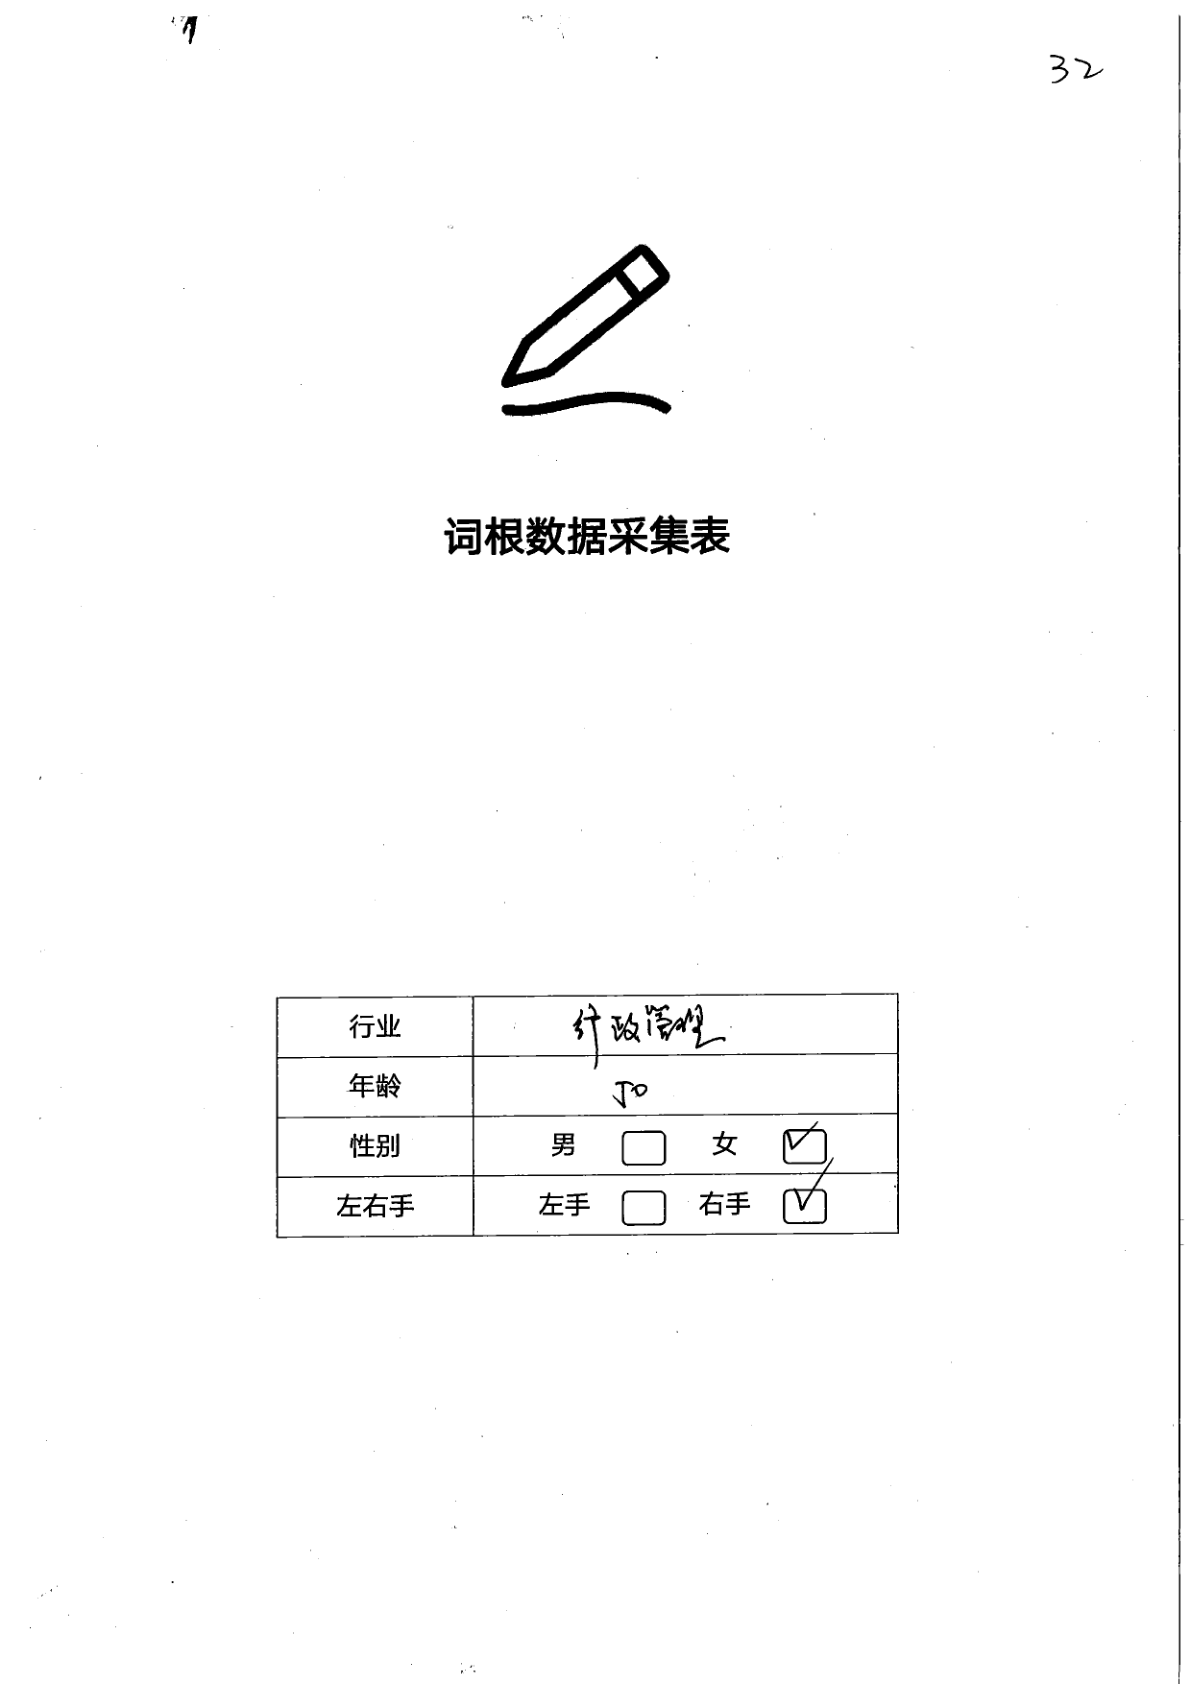 32
词根数据采集表
行业 行政管理
年龄 50
性别 男 女 ✓
左右手 左手 右手 ✓